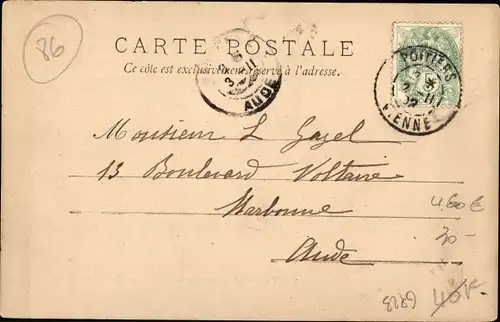 86
CARTE POSTALE
Ce côté est exclusivement réservé à l'adresse.
POITIERS
VIENNE
AUDE
Monsieur L Gazel
13 Boulevard Voltaire
Narbonne
Aude
4,60 €
30-
6823
40F